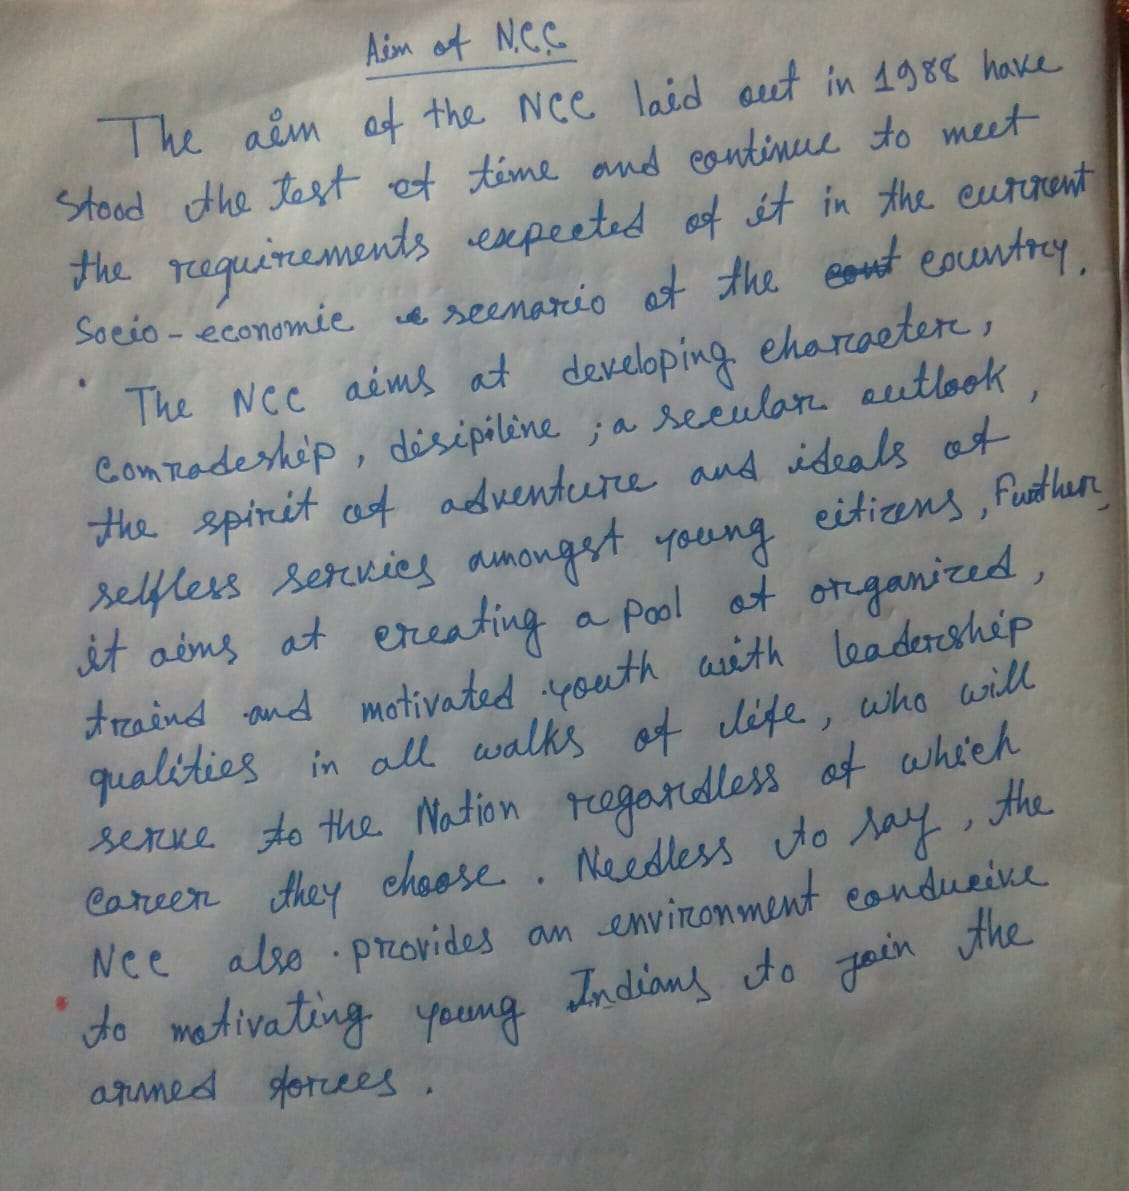 Aim of N.C.C
The aim of the NCC laid out in 1988 have
stood the test of time and continue to meet
the requirements expected of it in the current
Socio-economic scenario of the country.
The NCC aims at developing character,
Comradeship, disipiline ; a secular outlook,
the spirit of adventure and ideals of
selfless servics amongst young citizens, Further,
it aims at creating a pool of organized,
traind and motivated youth with leadership
qualities in all walks of life, who will
serve to the Nation regardless of which
career they choose. Needless to say, the
NCC also provides an environment conducive
to motivating young Indians to join the
armed forces.